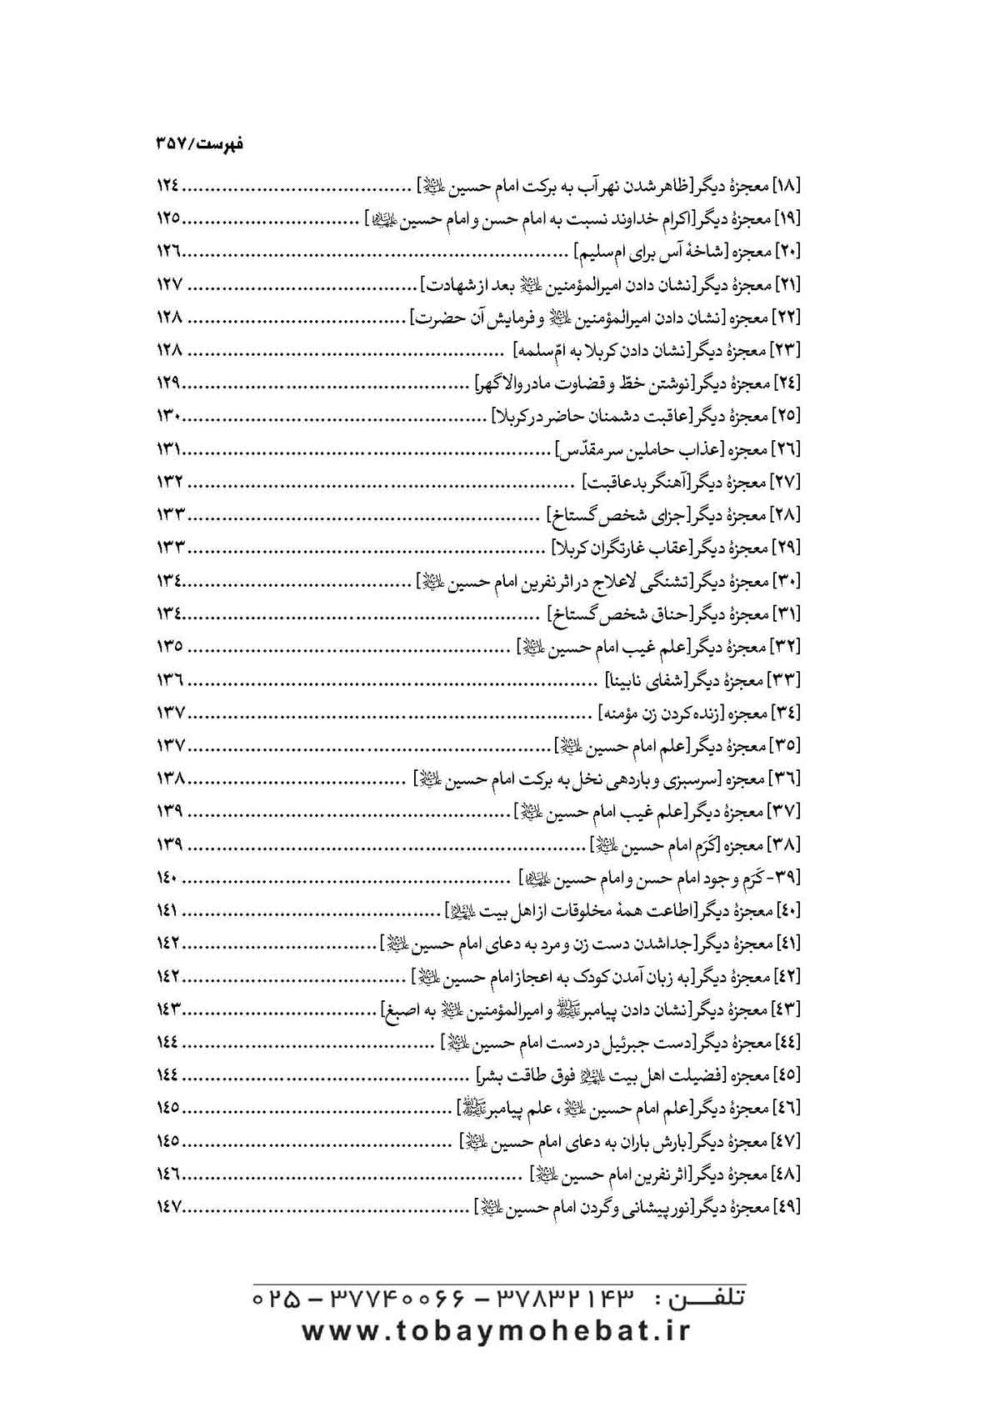 فهرست/٣٥٧
[١٨] معجزهٔ دیگر[ظاهر شدن نهر آب به برکت امام حسین علیه‌السلام] ........................................ ١٢٤
[١٩] معجزهٔ دیگر[اکرام خداوند نسبت به امام حسن و امام حسین علیهما‌السلام] ............................... ١٢٥
[٢٠] معجزه [شاخهٔ آس برای ام‌سلیم] .................................................................... ١٢٦
[٢١] معجزهٔ دیگر[نشان دادن امیرالمؤمنین علیه‌السلام بعد از شهادت] ........................................ ١٢٧
[٢٢] معجزه [نشان دادن امیرالمؤمنین علیه‌السلام و فرمایش آن حضرت] ...................................... ١٢٨
[٢٣] معجزهٔ دیگر[نشان دادن کربلا به امّ‌سلمه] ....................................................... ١٢٨
[٢٤] معجزهٔ دیگر[نوشتن خطّ و قضاوت مادر والاگهر] .................................................. ١٢٩
[٢٥] معجزهٔ دیگر[عاقبت دشمنان حاضر در کربلا] ..................................................... ١٣٠
[٢٦] معجزه [عذاب حاملین سر مقدّس] ................................................................. ١٣١
[٢٧] معجزهٔ دیگر[آهنگر بدعاقبت] .................................................................... ١٣٢
[٢٨] معجزهٔ دیگر[جزای شخص گستاخ] .............................................................. ١٣٣
[٢٩] معجزهٔ دیگر[عقاب غارتگران کربلا] .............................................................. ١٣٣
[٣٠] معجزهٔ دیگر[تشنگی لاعلاج در اثر نفرین امام حسین علیه‌السلام] ........................................ ١٣٤
[٣١] معجزهٔ دیگر[حناق شخص گستاخ] .............................................................. ١٣٤
[٣٢] معجزهٔ دیگر[علم غیب امام حسین علیه‌السلام] ........................................................ ١٣٥
[٣٣] معجزهٔ دیگر[شفای نابینا] ........................................................................ ١٣٦
[٣٤] معجزه [زنده کردن زن مؤمنه] ...................................................................... ١٣٧
[٣٥] معجزهٔ دیگر[علم امام حسین علیه‌السلام] ............................................................... ١٣٧
[٣٦] معجزه [سرسبزی و باردهی نخل به برکت امام حسین علیه‌السلام] ...................................... ١٣٨
[٣٧] معجزهٔ دیگر[علم غیب امام حسین علیه‌السلام] ........................................................ ١٣٩
[٣٨] معجزه [کَرَم امام حسین علیه‌السلام] ..................................................................... ١٣٩
[٣٩- کَرَم و جود امام حسن و امام حسین علیهما‌السلام] ......................................................... ١٤٠
[٤٠] معجزهٔ دیگر[اطاعت همهٔ مخلوقات از اهل بیت علیهم‌السلام] ............................................. ١٤١
[٤١] معجزهٔ دیگر[جداشدن دست زن و مرد به دعای امام حسین علیه‌السلام] .................................. ١٤٢
[٤٢] معجزهٔ دیگر[به زبان آمدن کودک به اعجاز امام حسین علیه‌السلام] ....................................... ١٤٢
[٤٣] معجزهٔ دیگر[نشان دادن پیامبر ﷺ و امیرالمؤمنین علیه‌السلام به اصبغ] .................................. ١٤٣
[٤٤] معجزهٔ دیگر[دست جبرئیل در دست امام حسین علیه‌السلام] ............................................ ١٤٤
[٤٥] معجزه [فضیلت اهل بیت علیهم‌السلام فوق طاقت بشر] .................................................. ١٤٤
[٤٦] معجزهٔ دیگر[علم امام حسین علیه‌السلام، علم پیامبر ﷺ] ............................................... ١٤٥
[٤٧] معجزهٔ دیگر[بارش باران به دعای امام حسین علیه‌السلام] ............................................... ١٤٥
[٤٨] معجزهٔ دیگر[اثر نفرین امام حسین علیه‌السلام] ........................................................... ١٤٦
[٤٩] معجزهٔ دیگر[نور پیشانی و گردن امام حسین علیه‌السلام] .................................................. ١٤٧
تلفــن : ۳۷۸۳۲۱۴۳ – ۳۷۷۴۰۰۶۶ – ۰۲۵
www.tobaymohebat.ir